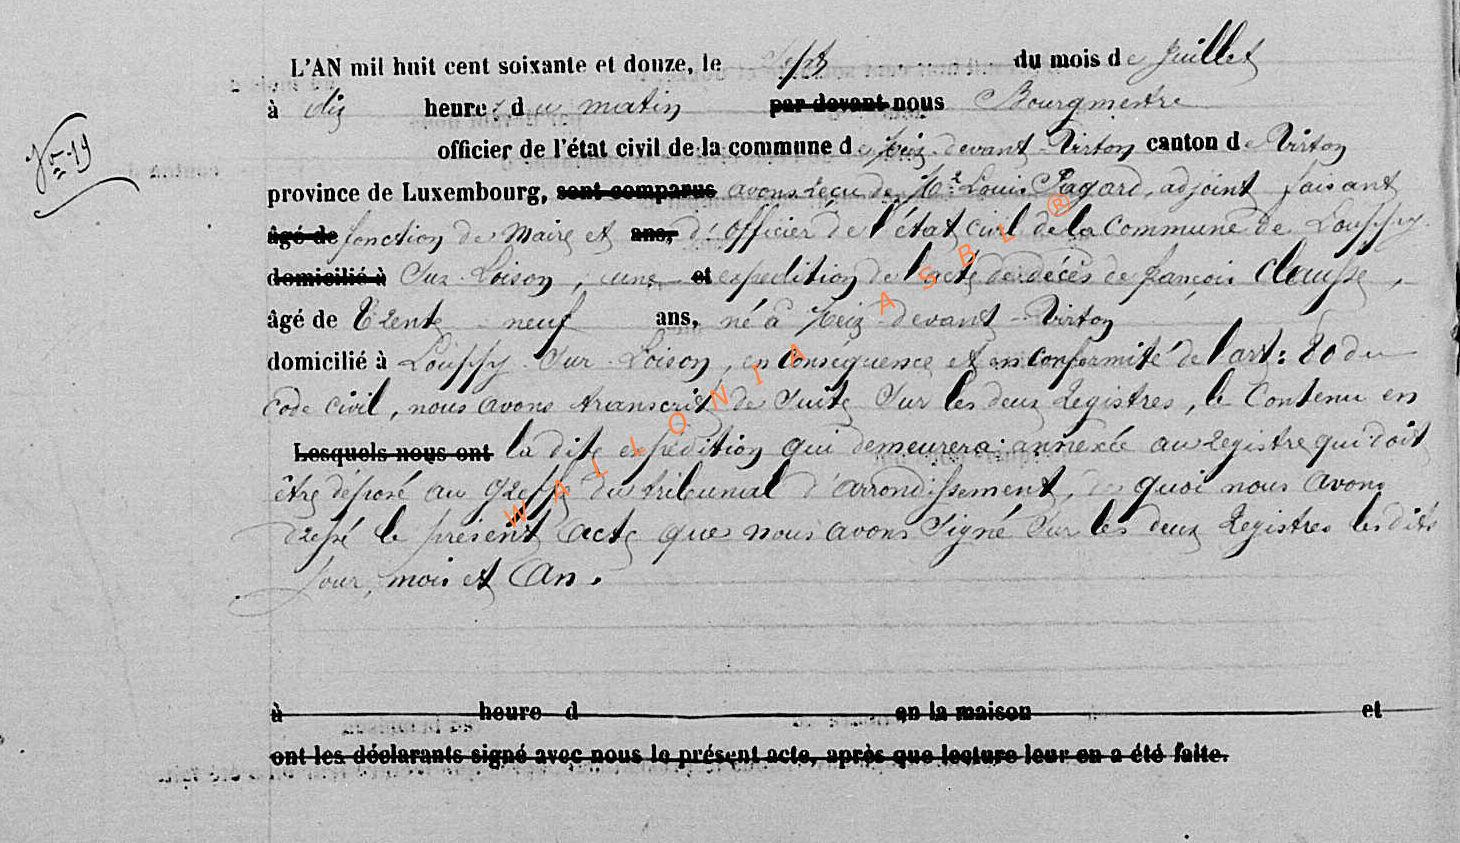 N° 19
L'AN mil huit cent soixante et douze, le Sept du mois de Juillet
à dix heures du matin par devant nous Bourgmestre
officier de l'état civil de la commune de Meix-devant-Virton canton de Virton
province de Luxembourg, sont comparus avons reçu de Mr Louis Pagard, adjoint faisant
âgé de fonction de Maire et ans, d'officier de l'état civil de la commune de Louppy
domicilié à Sur-Loison, une et expédition de l'acte de décès de françois Clausse,
âgé de trente-neuf ans, né à Meix-devant-Virton
domicilié à Louppy-Sur-Loison, en conséquence et en conformité de l'art: 80 du
Code civil, nous avons transcrit de suite sur les deux Registres, le Contenu en
Lesquels nous ont la dite expédition qui demeurera annexée au registre qui doit
être déposé au greffe du tribunal d'arrondissement, de quoi nous avons
dressé le présent acte que nous avons signé sur les deux Registres les dits
jour, mois et an.
à heure d en la maison et
ont les déclarants signé avec nous le présent acte, après que lecture leur en a été faite.
WALLONIA ASBL ®